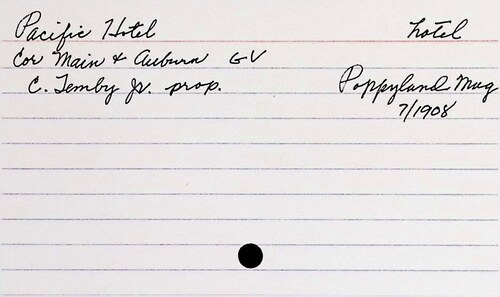 Pacific Hotel
hotel
Cor Main & Auburn GV
C. Temby Jr. prop.
Poppyland Mag
7/1908